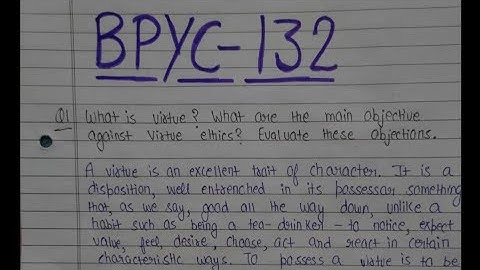 BPYC-132
Q1 What is virtue? What are the main objective
against virtue ethics? Evaluate these objections.
A virtue is an excellent trait of character. It is a
disposition, well entrenched in its possessor something
that, as we say, good all the way down, unlike a
habit such as being a tea-drinker - to notice, expect
value, feel, desire, choose, act and react in certain
characteristic ways. To possess a virtue is to be